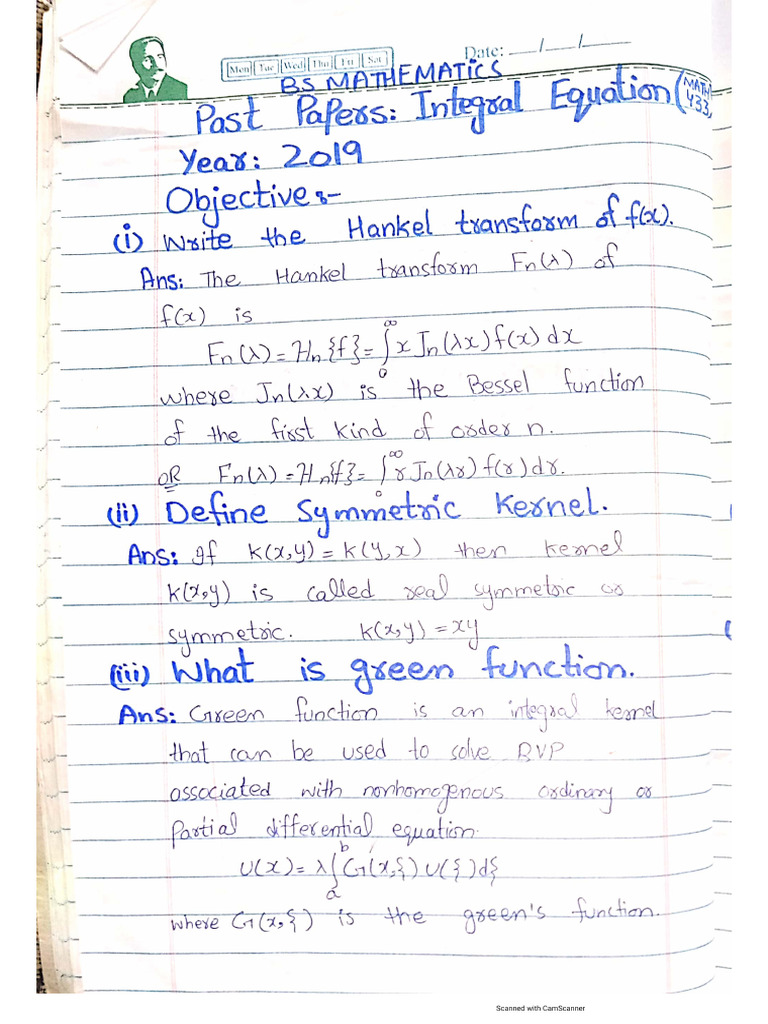 Mon Tue Wed Thu Fri Sat
Date: ___/___/___
BS MATHEMATICS
Past Papers: Integral Equation (MATH 433)
Year: 2019
Objective :-
(i) Write the Hankel transform of f(x).
Ans: The Hankel transform Fn(λ) of
f(x) is
Fn(λ) = Hn{f} = ∫₀^∞ x Jn(λx) f(x) dx
where Jn(λx) is the Bessel function
of the first kind of order n.
OR Fn(λ) = Hn{f} = ∫₀^∞ r Jn(λr) f(r) dr.
(ii) Define Symmetric Kernel.
Ans: If K(x,y) = K(y,x) then kernel
K(x,y) is called real symmetric or
symmetric. K(x,y) = xy
(iii) What is green function.
Ans: Green function is an integral kernel
that can be used to solve BVP
associated with nonhomogenous ordinary or
Partial differential equation.
U(x) = λ ∫ₐᵇ G(x,ξ) U(ξ) dξ
where G(x,ξ) is the green's function.
Scanned with CamScanner